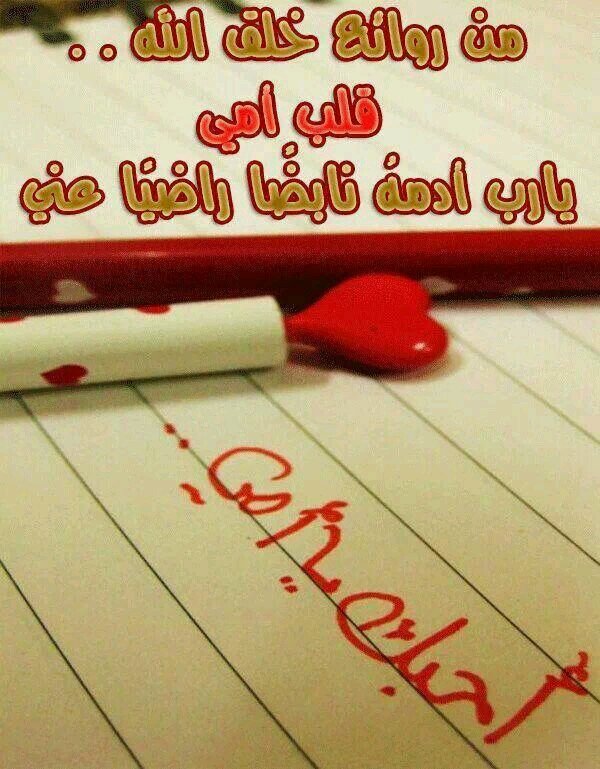 من روائع خلق الله . .
قلب أمي
يارب أدمهُ نابضًا راضيًا عني
أحبك يا أمي ..